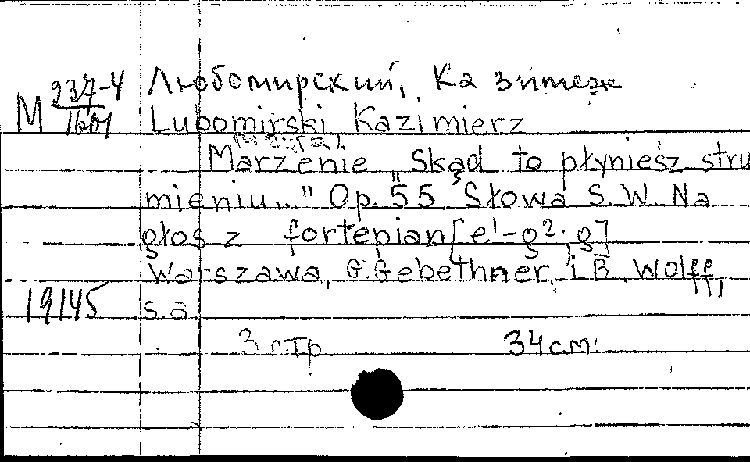 М 237-4
1601
Любомирский, Казимеж
Lubomirski Kazimierz
Marzenie „Skąd to płyniesz stru
mieniu..." Op. 55 Słowa S.W. Na
głos z fortepian [e¹-g²; g]
Warszawa, G. Gebethner i R. Wolff,
19145 s.a
3 стр 34 см.